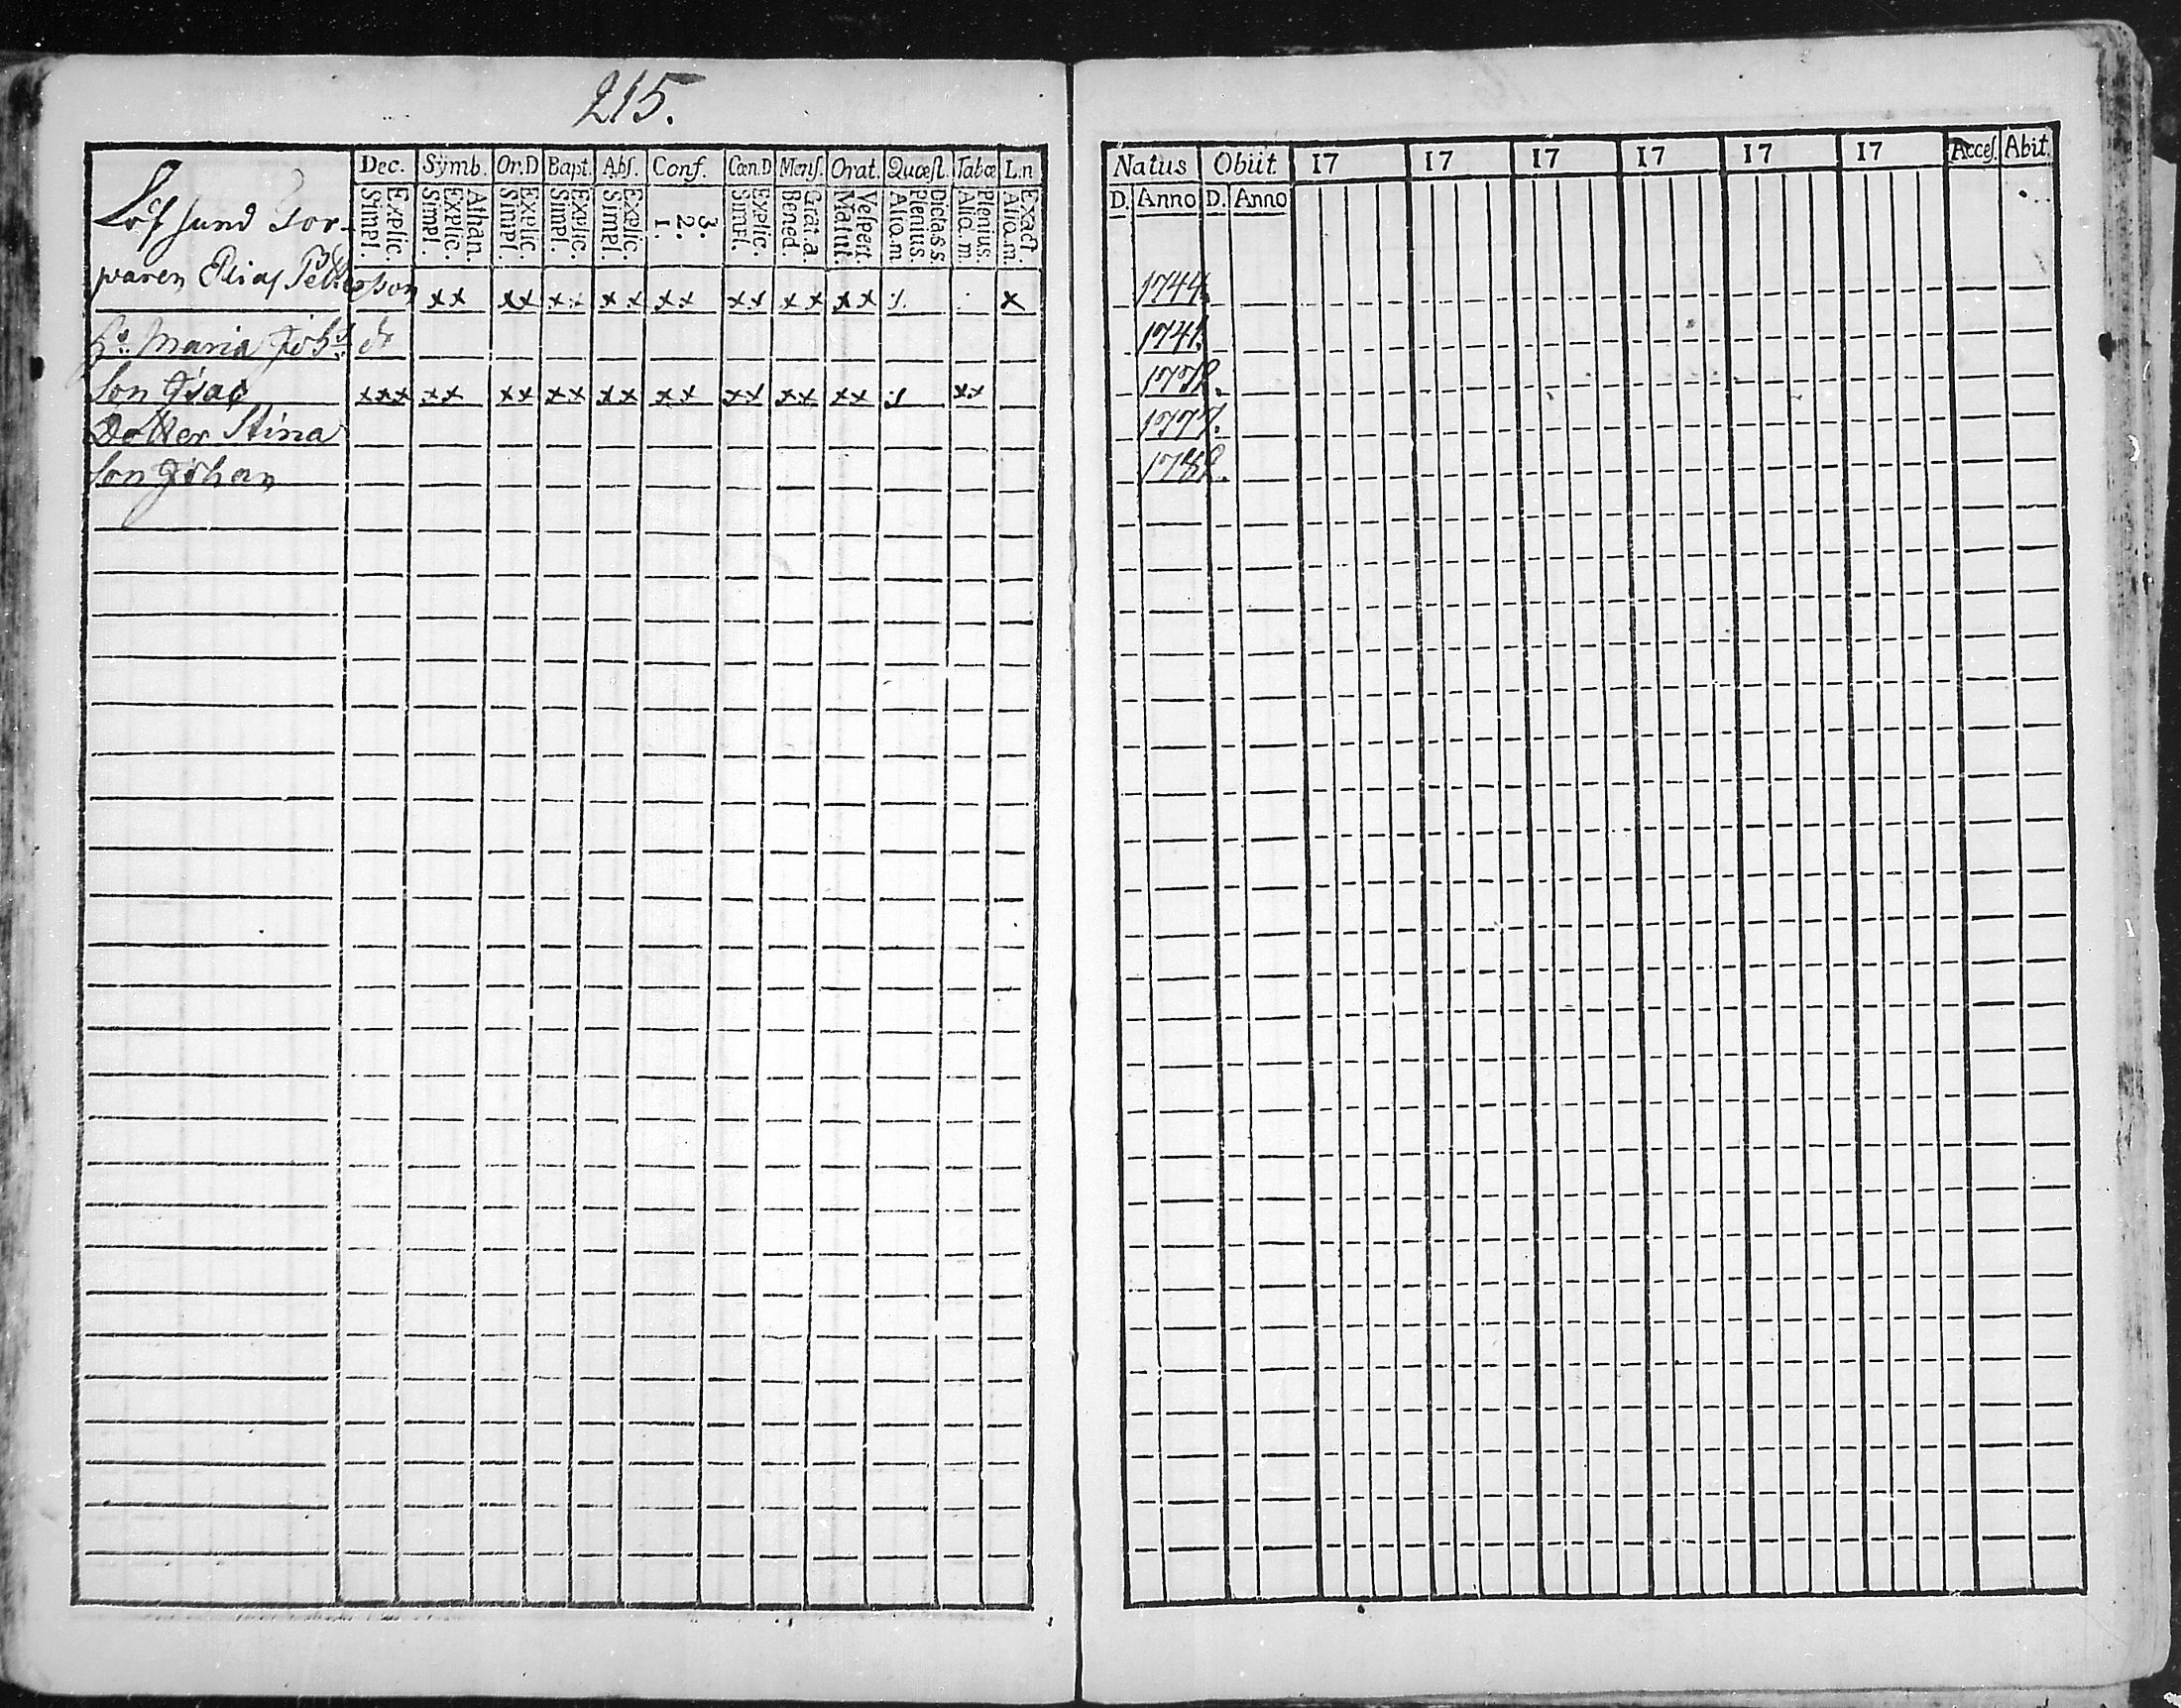 215.
Dec. Symb. Or.D Bapt. Abſ. Conf. Cœn.D Menſ. Orat. Quæſt. Tabœ L.n
Explic. Simpl. Athan. Explic. Simpl. Explic. Simpl. Explic. Simpl. Explic. Simpl. 3. 2. 1. Explic. Simpl. Grat.a. Bened. Veſpert. Matut. Dictas s Plenius. Aliq.m Plenius. Aliq.m Exact. Aliq.m.
sund Tor-
paren Elias Petterson xx xx xx xx xx xx xx xx x
H:o Maria Joh:d
Son Isac xxx xx xx xx xx xx xx xx xx xx
Dotter Stina
Son Johan
Natus Obiit 17 17 17 17 17 17 Acceſ. Abit.
D. Anno D. Anno
1744.
1741.
1772.
1777.
1782.